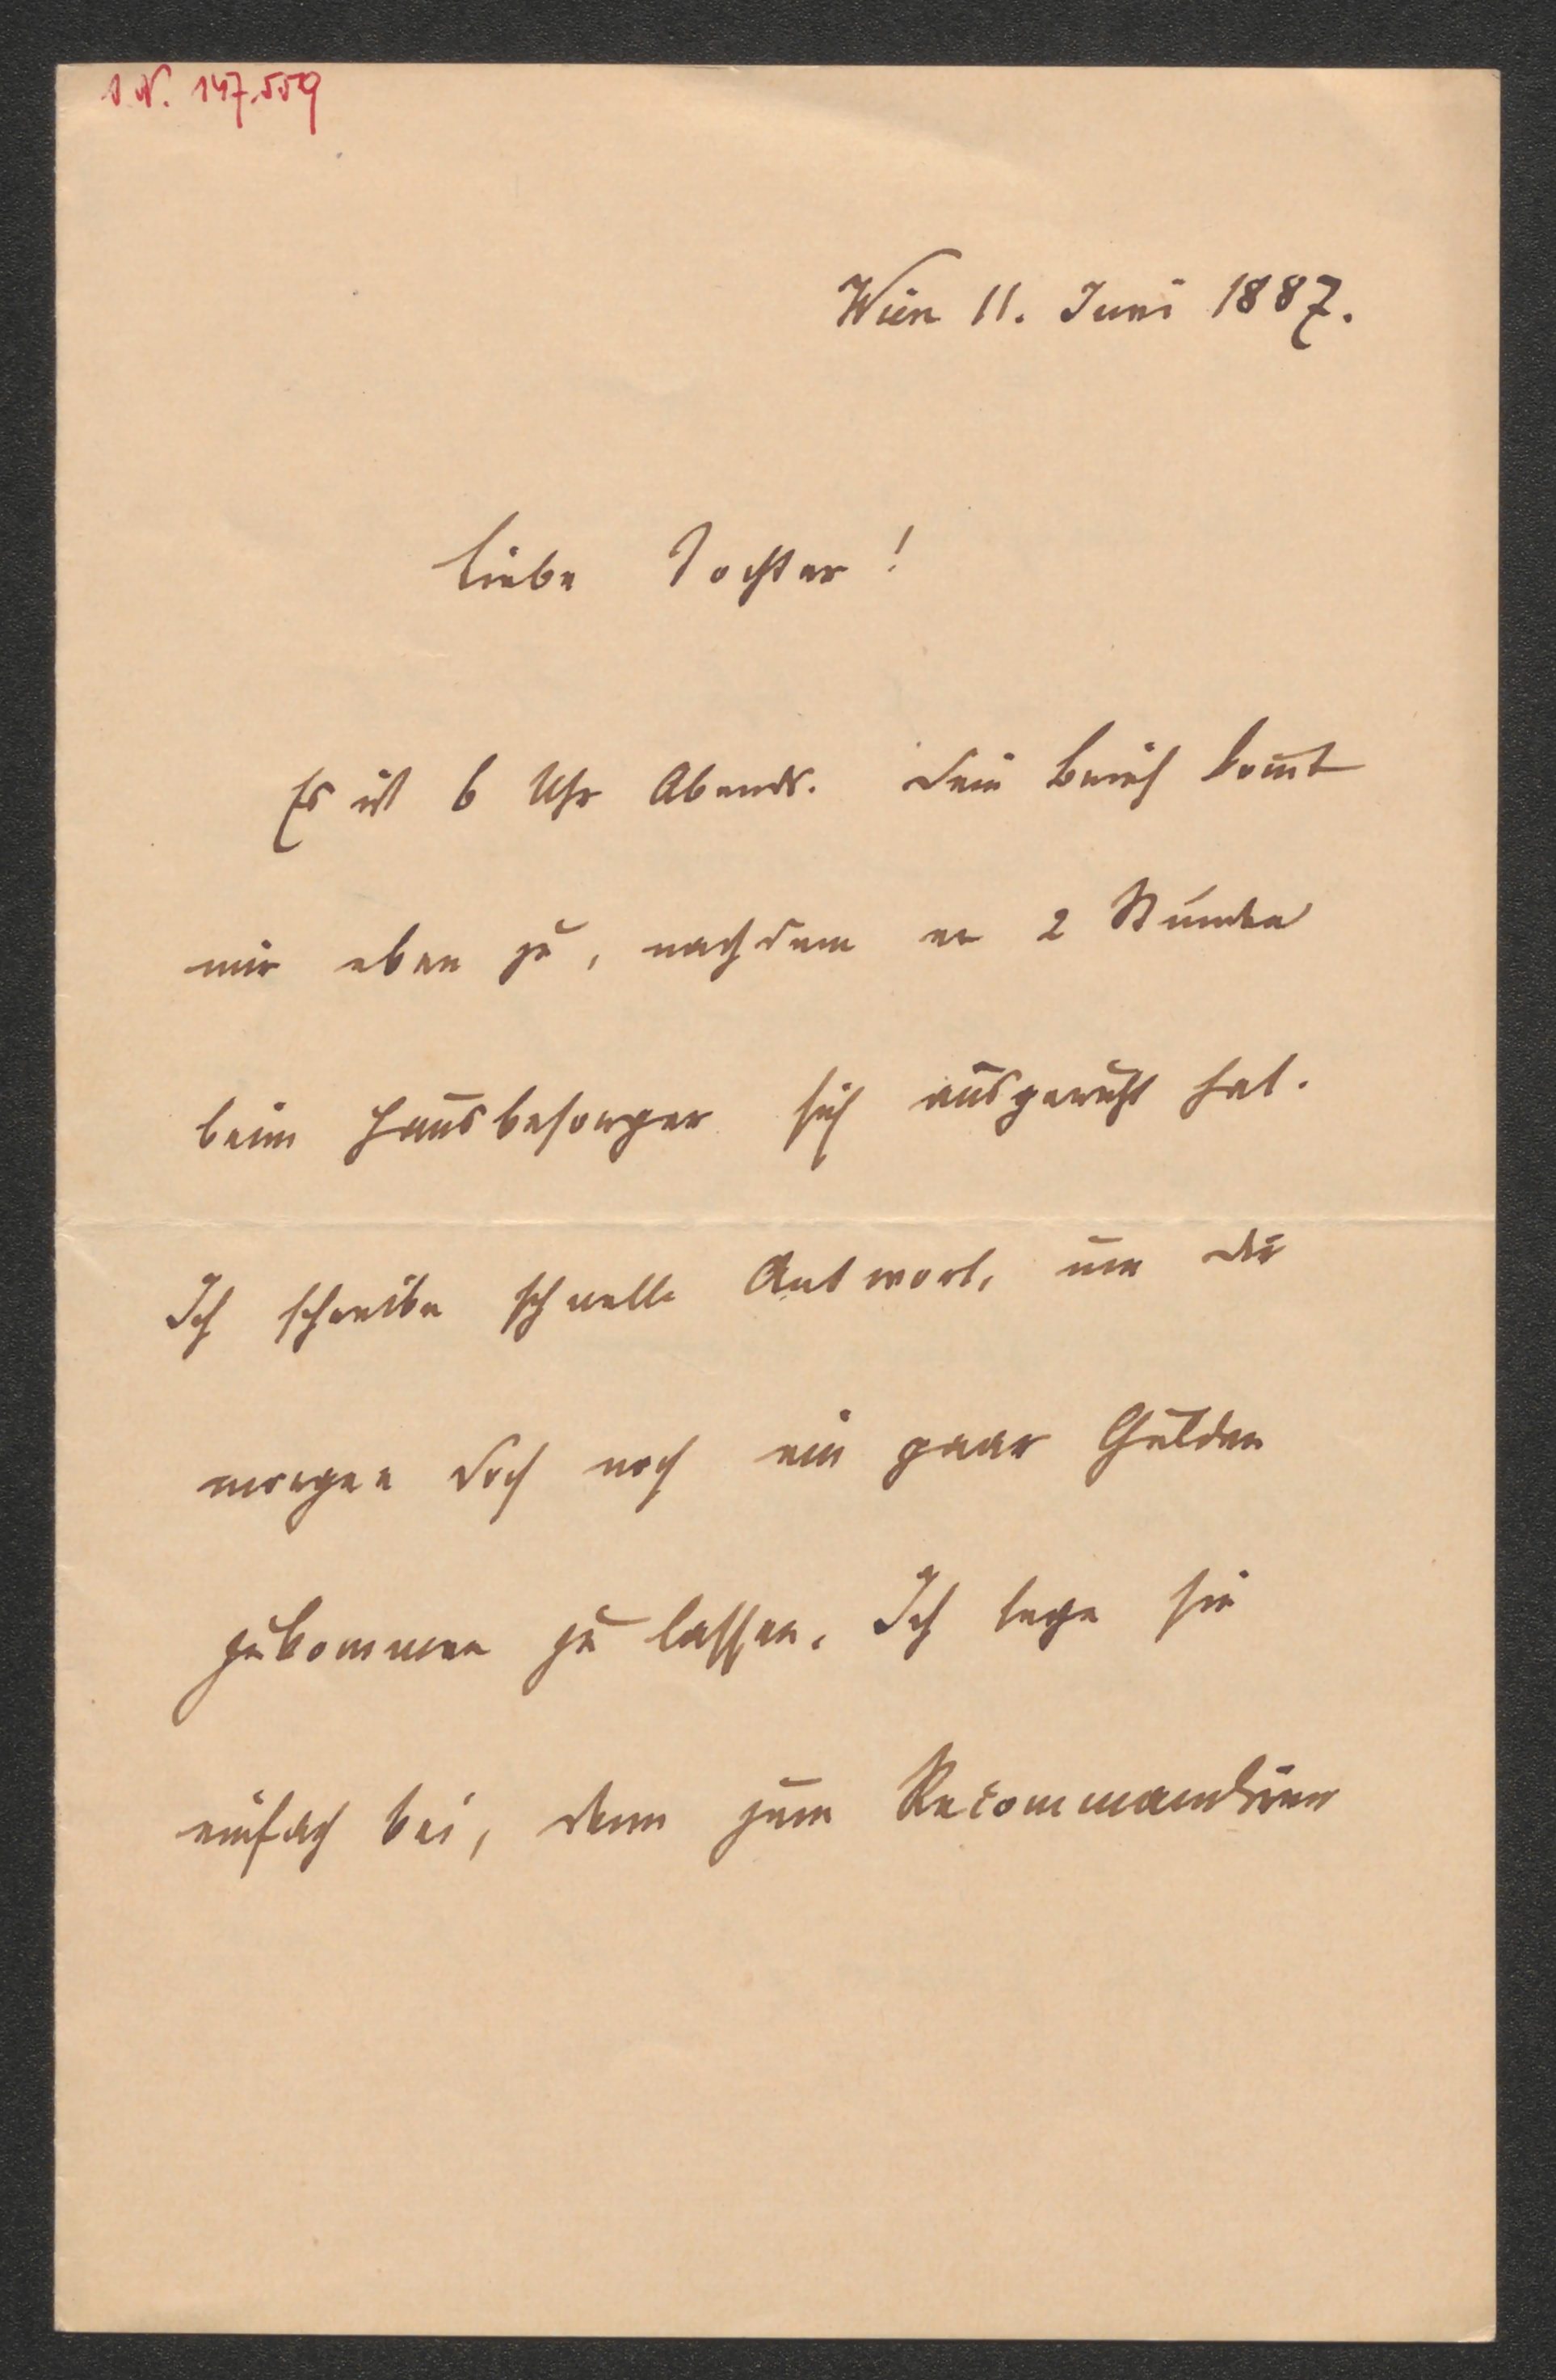 I.N. 147.559
Wien 11. Juni 1887.
Liebe Tochter!
Es ist 6 Uhr Abends. Dein Brief kom̄t
mir eben zu, nachdem er 2 Stunden
beim Hausbesorger sich ausgeruht hat.
Ich schreibe schnelle Antwort, um dir
morgen doch noch ein paar Gulden
zukommen zu lassen. Ich lege sie
einfach bei, denn zum Recommandiren